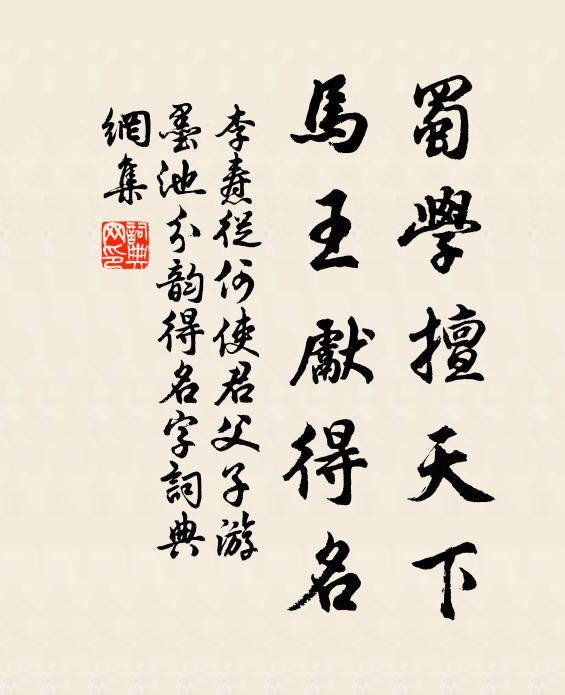 蜀學擅天下
馬王獻得名
李燾從何使君父子游
墨池分韵得名字詞典
網集
詞典
网印